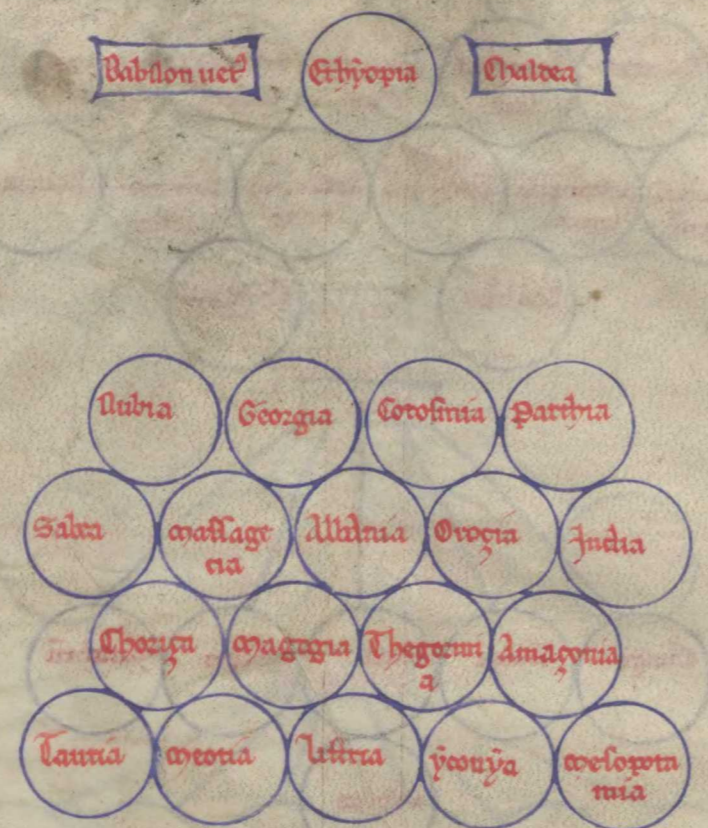 Babilon uet᷒
Ethẏopia
Chaldea
Nubia
Georgia
Corosinia
Parthia
Sabea
Massage
cia
Albania
Oroçia
Jndia
Choriça
Magogia
Thegormi
a
Amaçonia
Tauria
Meotia
ẏconẏa
Mesopota
mia